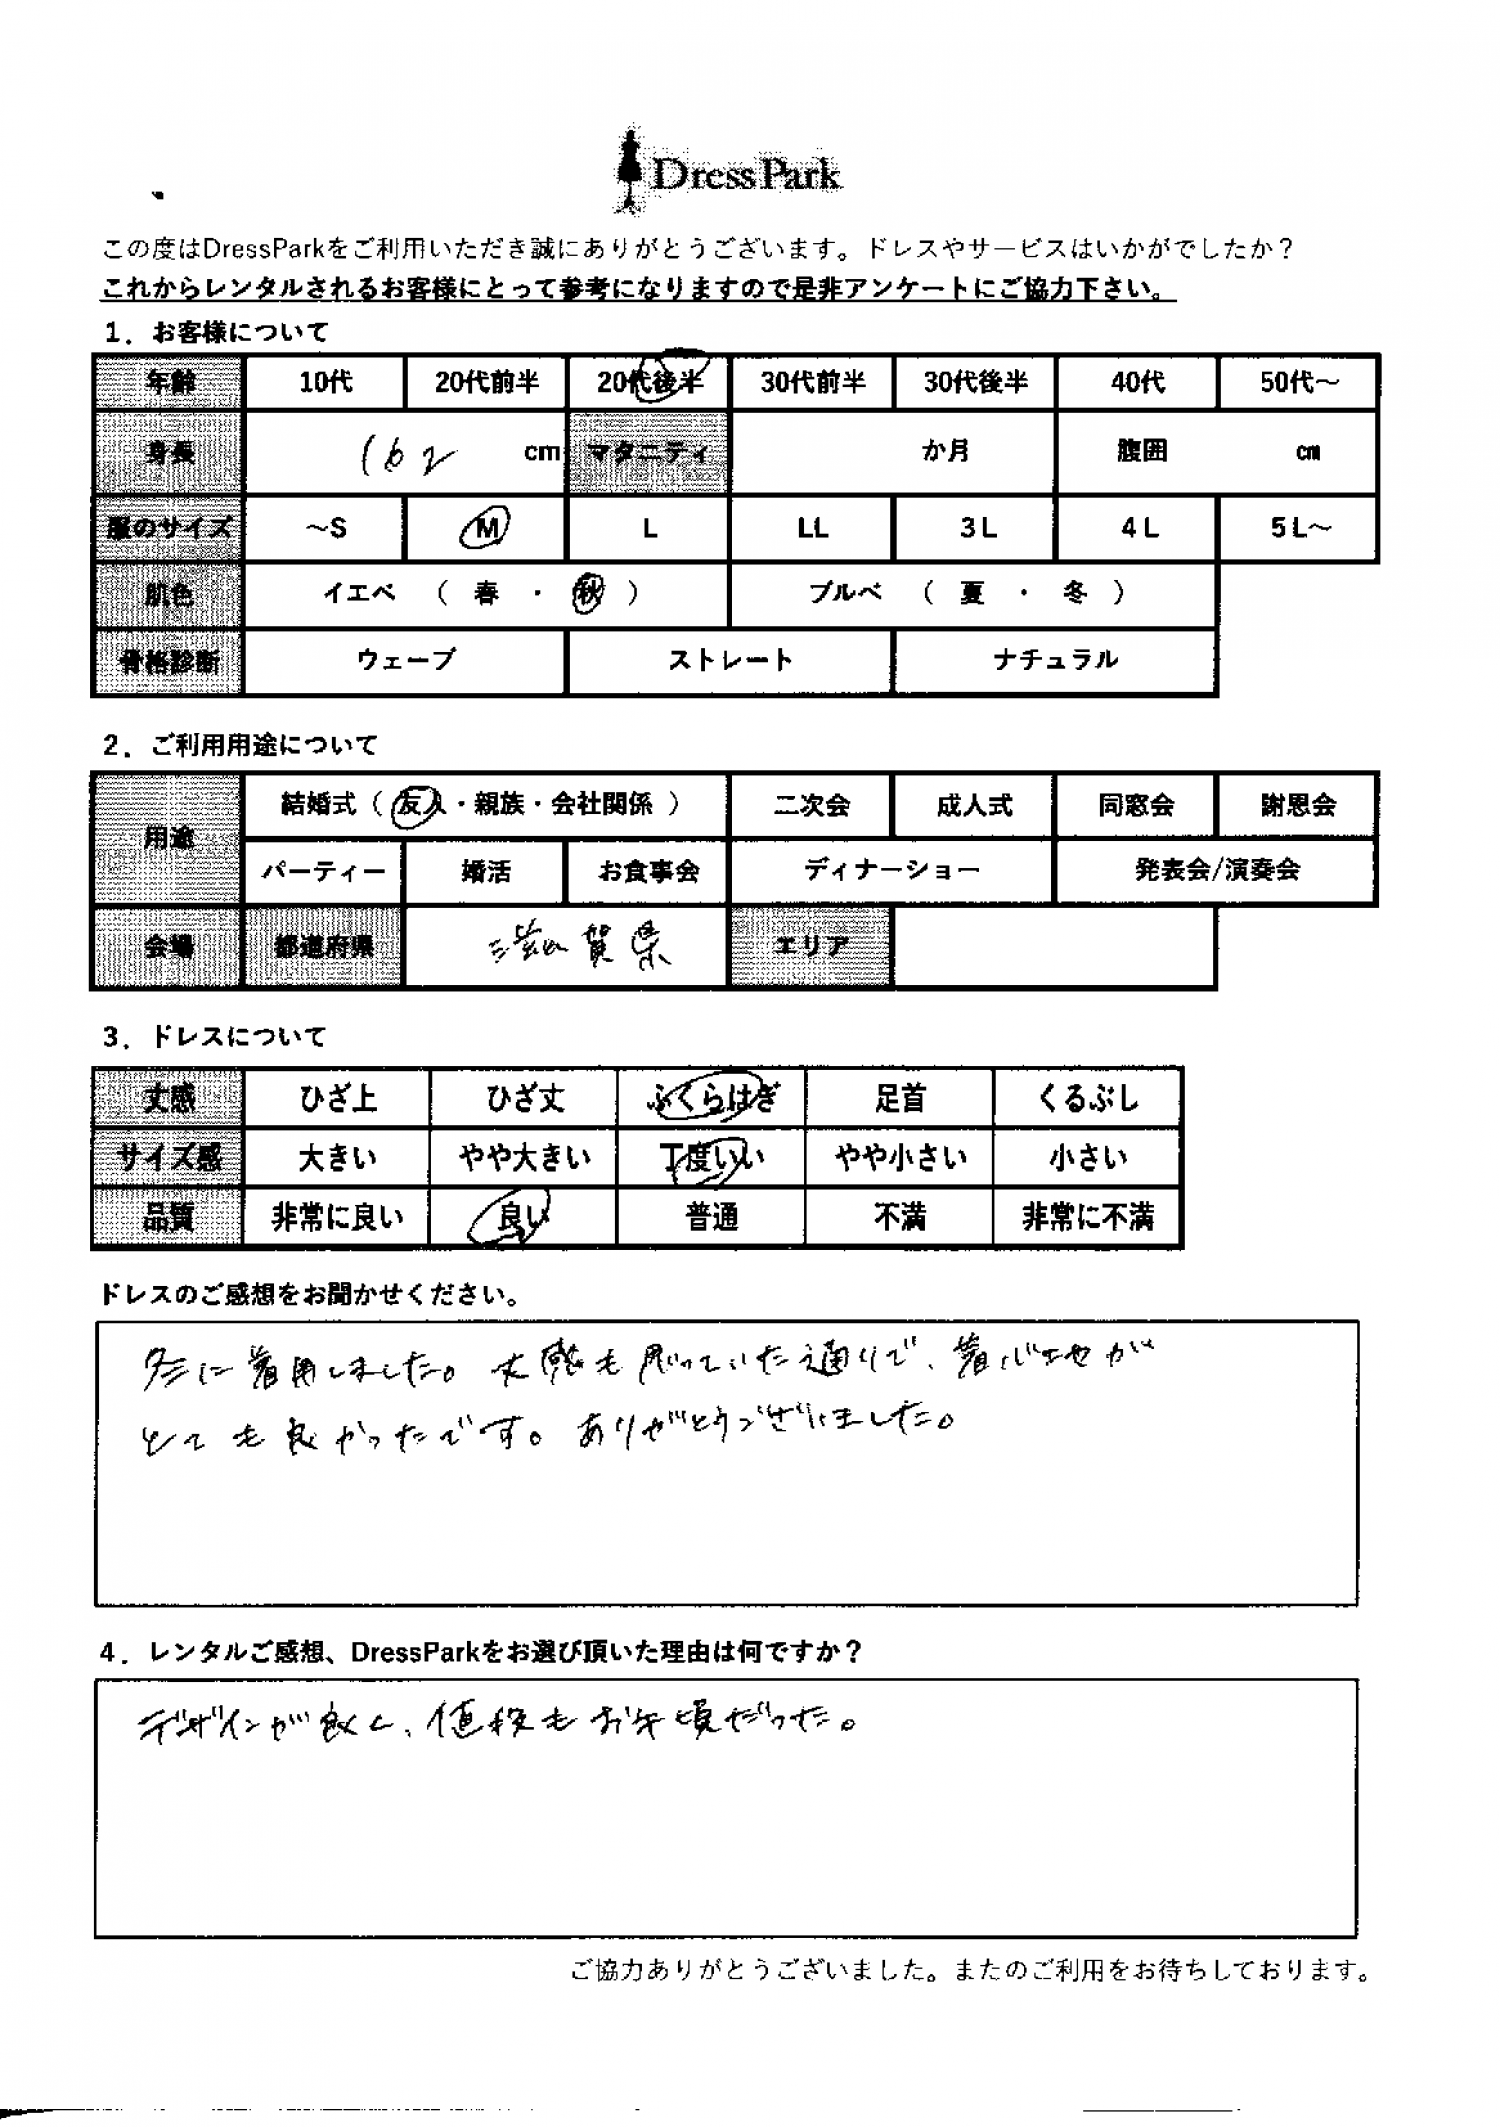 DressPark
この度はDressParkをご利用いただき誠にありがとうございます。ドレスやサービスはいかがでしたか？
これからレンタルされるお客様にとって参考になりますので是非アンケートにご協力下さい。
1．お客様について
年齢 10代 20代前半 20代後半 30代前半 30代後半 40代 50代～
身長 162 cm マタニティ か月 腹囲 cm
服のサイズ ～S M L LL 3L 4L 5L～
肌色 イエベ （ 春 ・ 秋 ） ブルベ （ 夏 ・ 冬 ）
骨格診断 ウェーブ ストレート ナチュラル
2．ご利用用途について
用途 結婚式（ 友人・親族・会社関係 ） 二次会 成人式 同窓会 謝恩会
パーティー 婚活 お食事会 ディナーショー 発表会/演奏会
会場 都道府県 滋賀県 エリア
3．ドレスについて
丈感 ひざ上 ひざ丈 ふくらはぎ 足首 くるぶし
サイズ感 大きい やや大きい 丁度いい やや小さい 小さい
品質 非常に良い 良い 普通 不満 非常に不満
ドレスのご感想をお聞かせください。
冬に着用しました。丈感も思っていた通りで、着心地が
とても良かったです。ありがとうございました。
4．レンタルご感想、DressParkをお選び頂いた理由は何ですか？
デザインが良く、値段もお手頃だった。
ご協力ありがとうございました。またのご利用をお待ちしております。